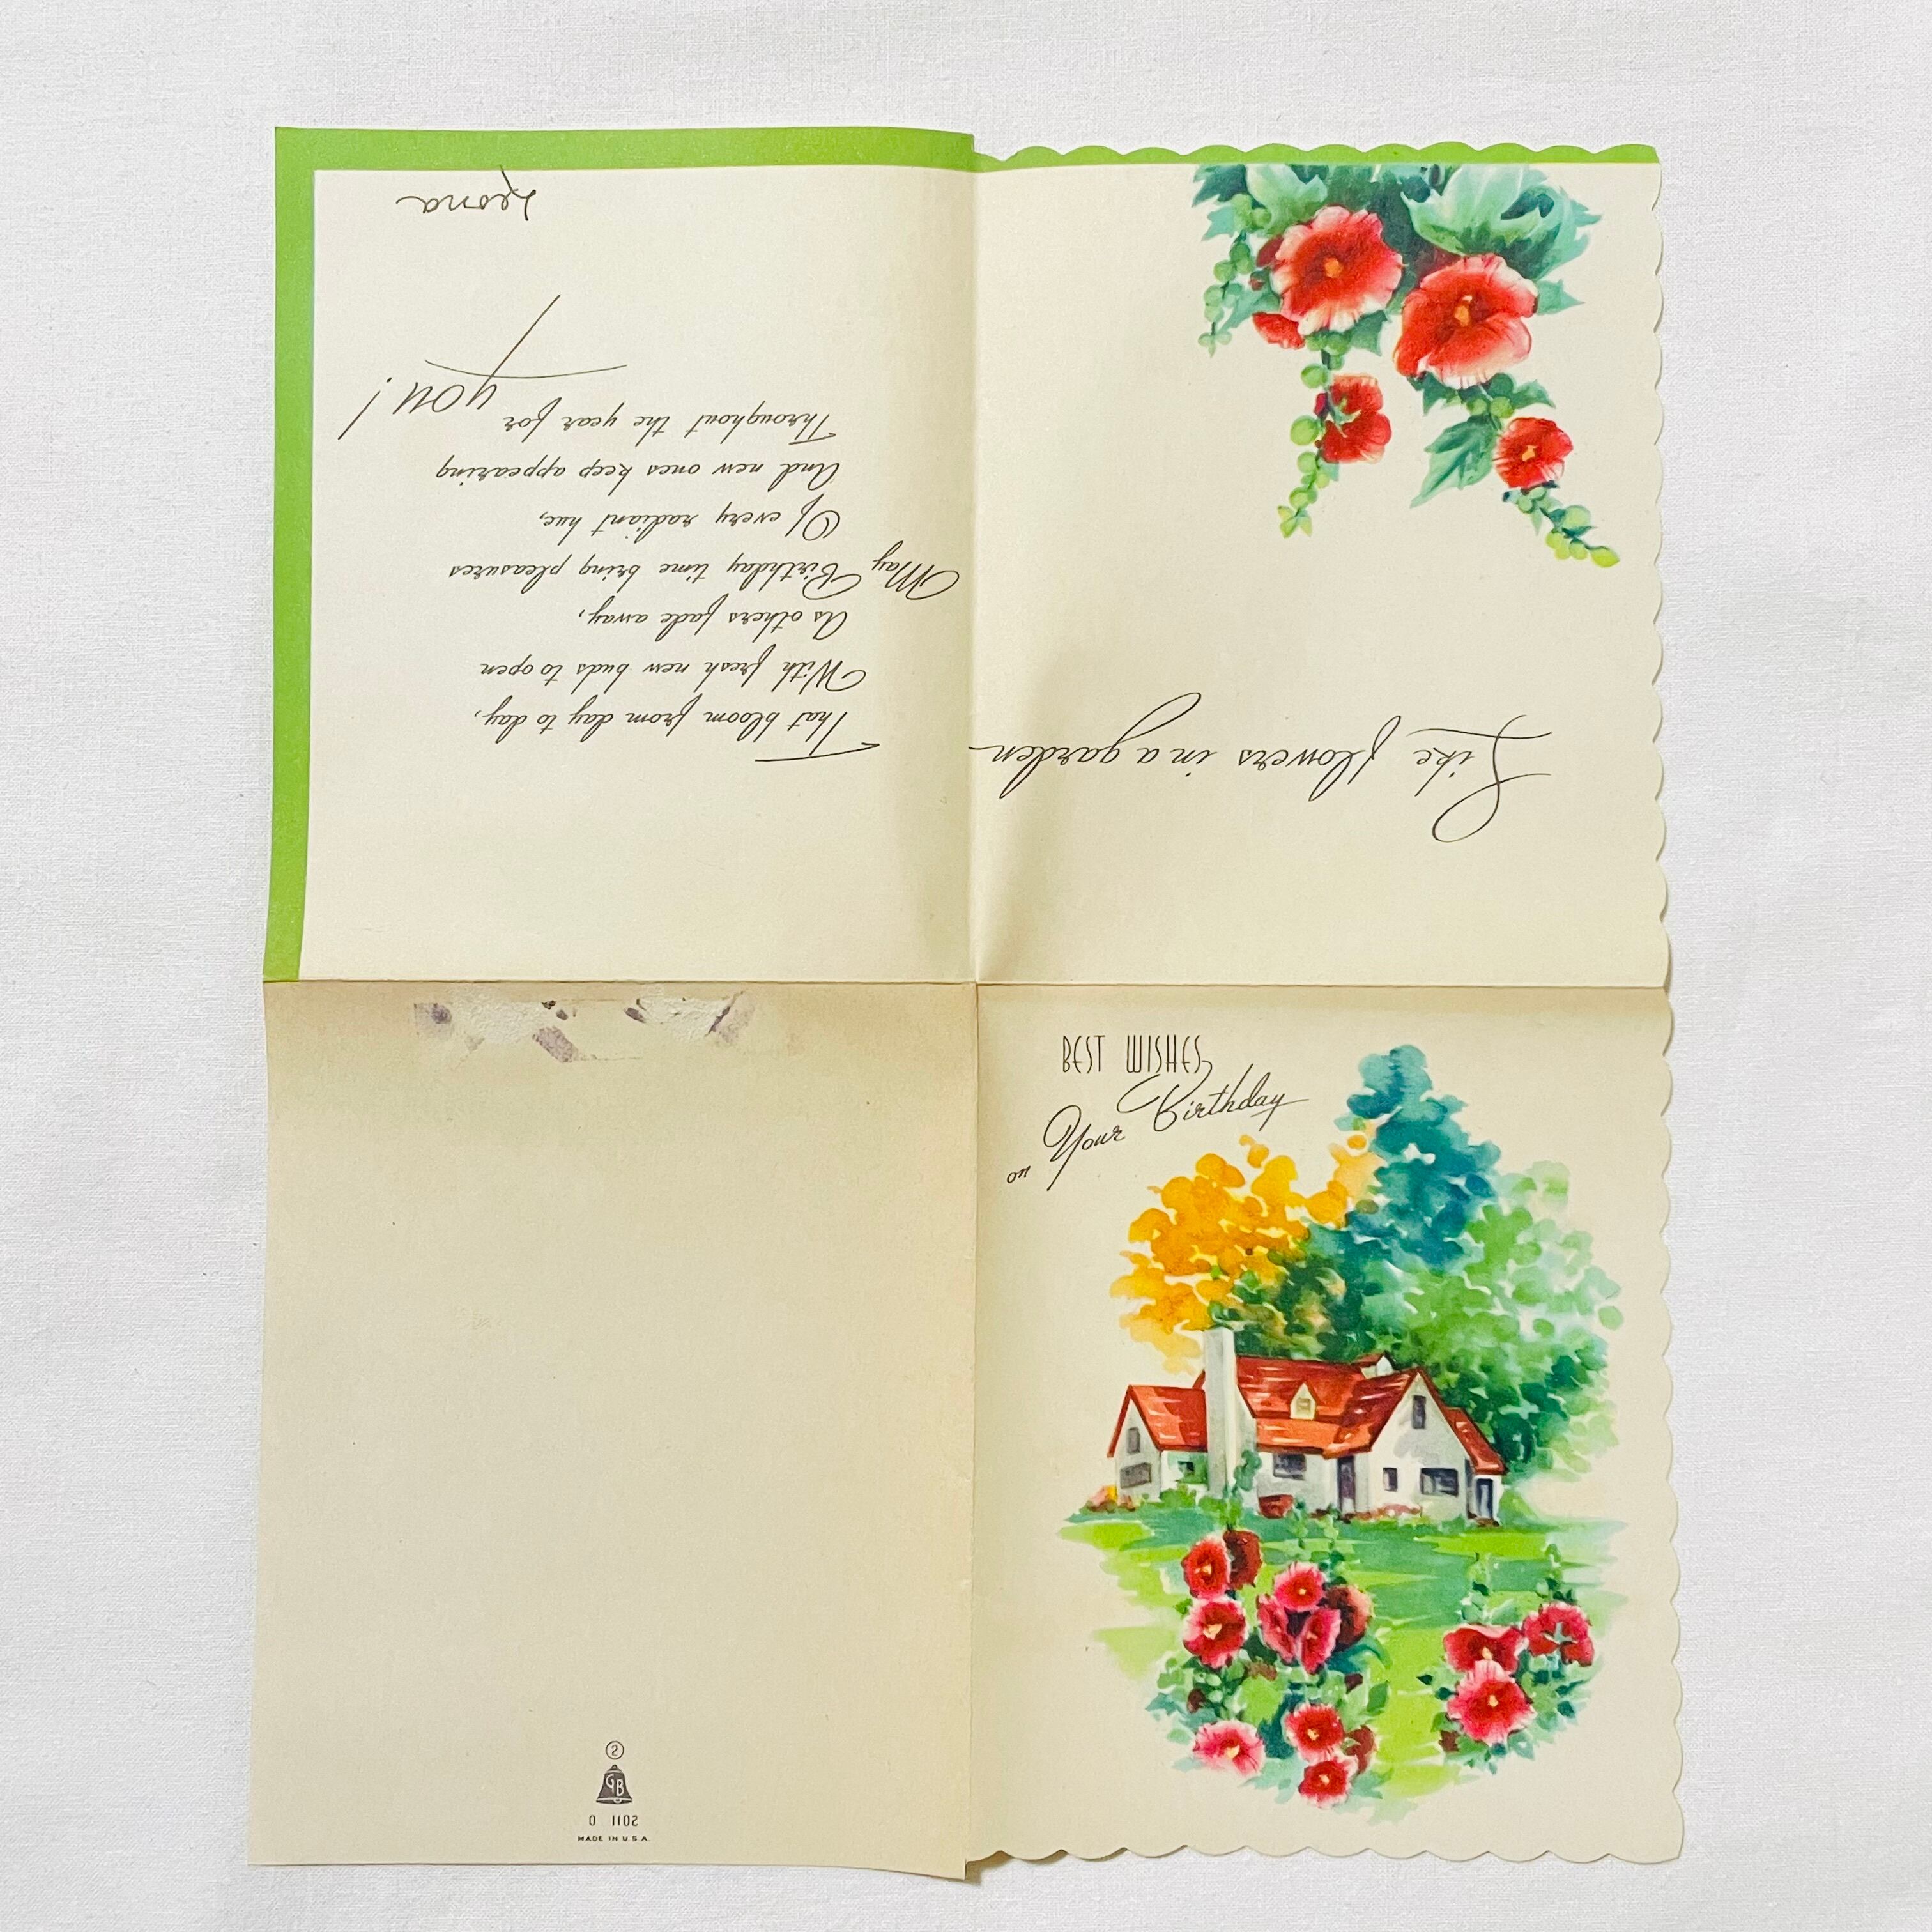 BEST WISHES
on Your Birthday
Like flowers in a garden
That bloom from day to day,
With fresh new buds to open
As others fade away,
May Birthday time bring pleasures
Of every radiant hue,
And new ones keep appearing
Throughout the year for
you!
Leona
S
GB
0 1102
MADE IN U.S.A.